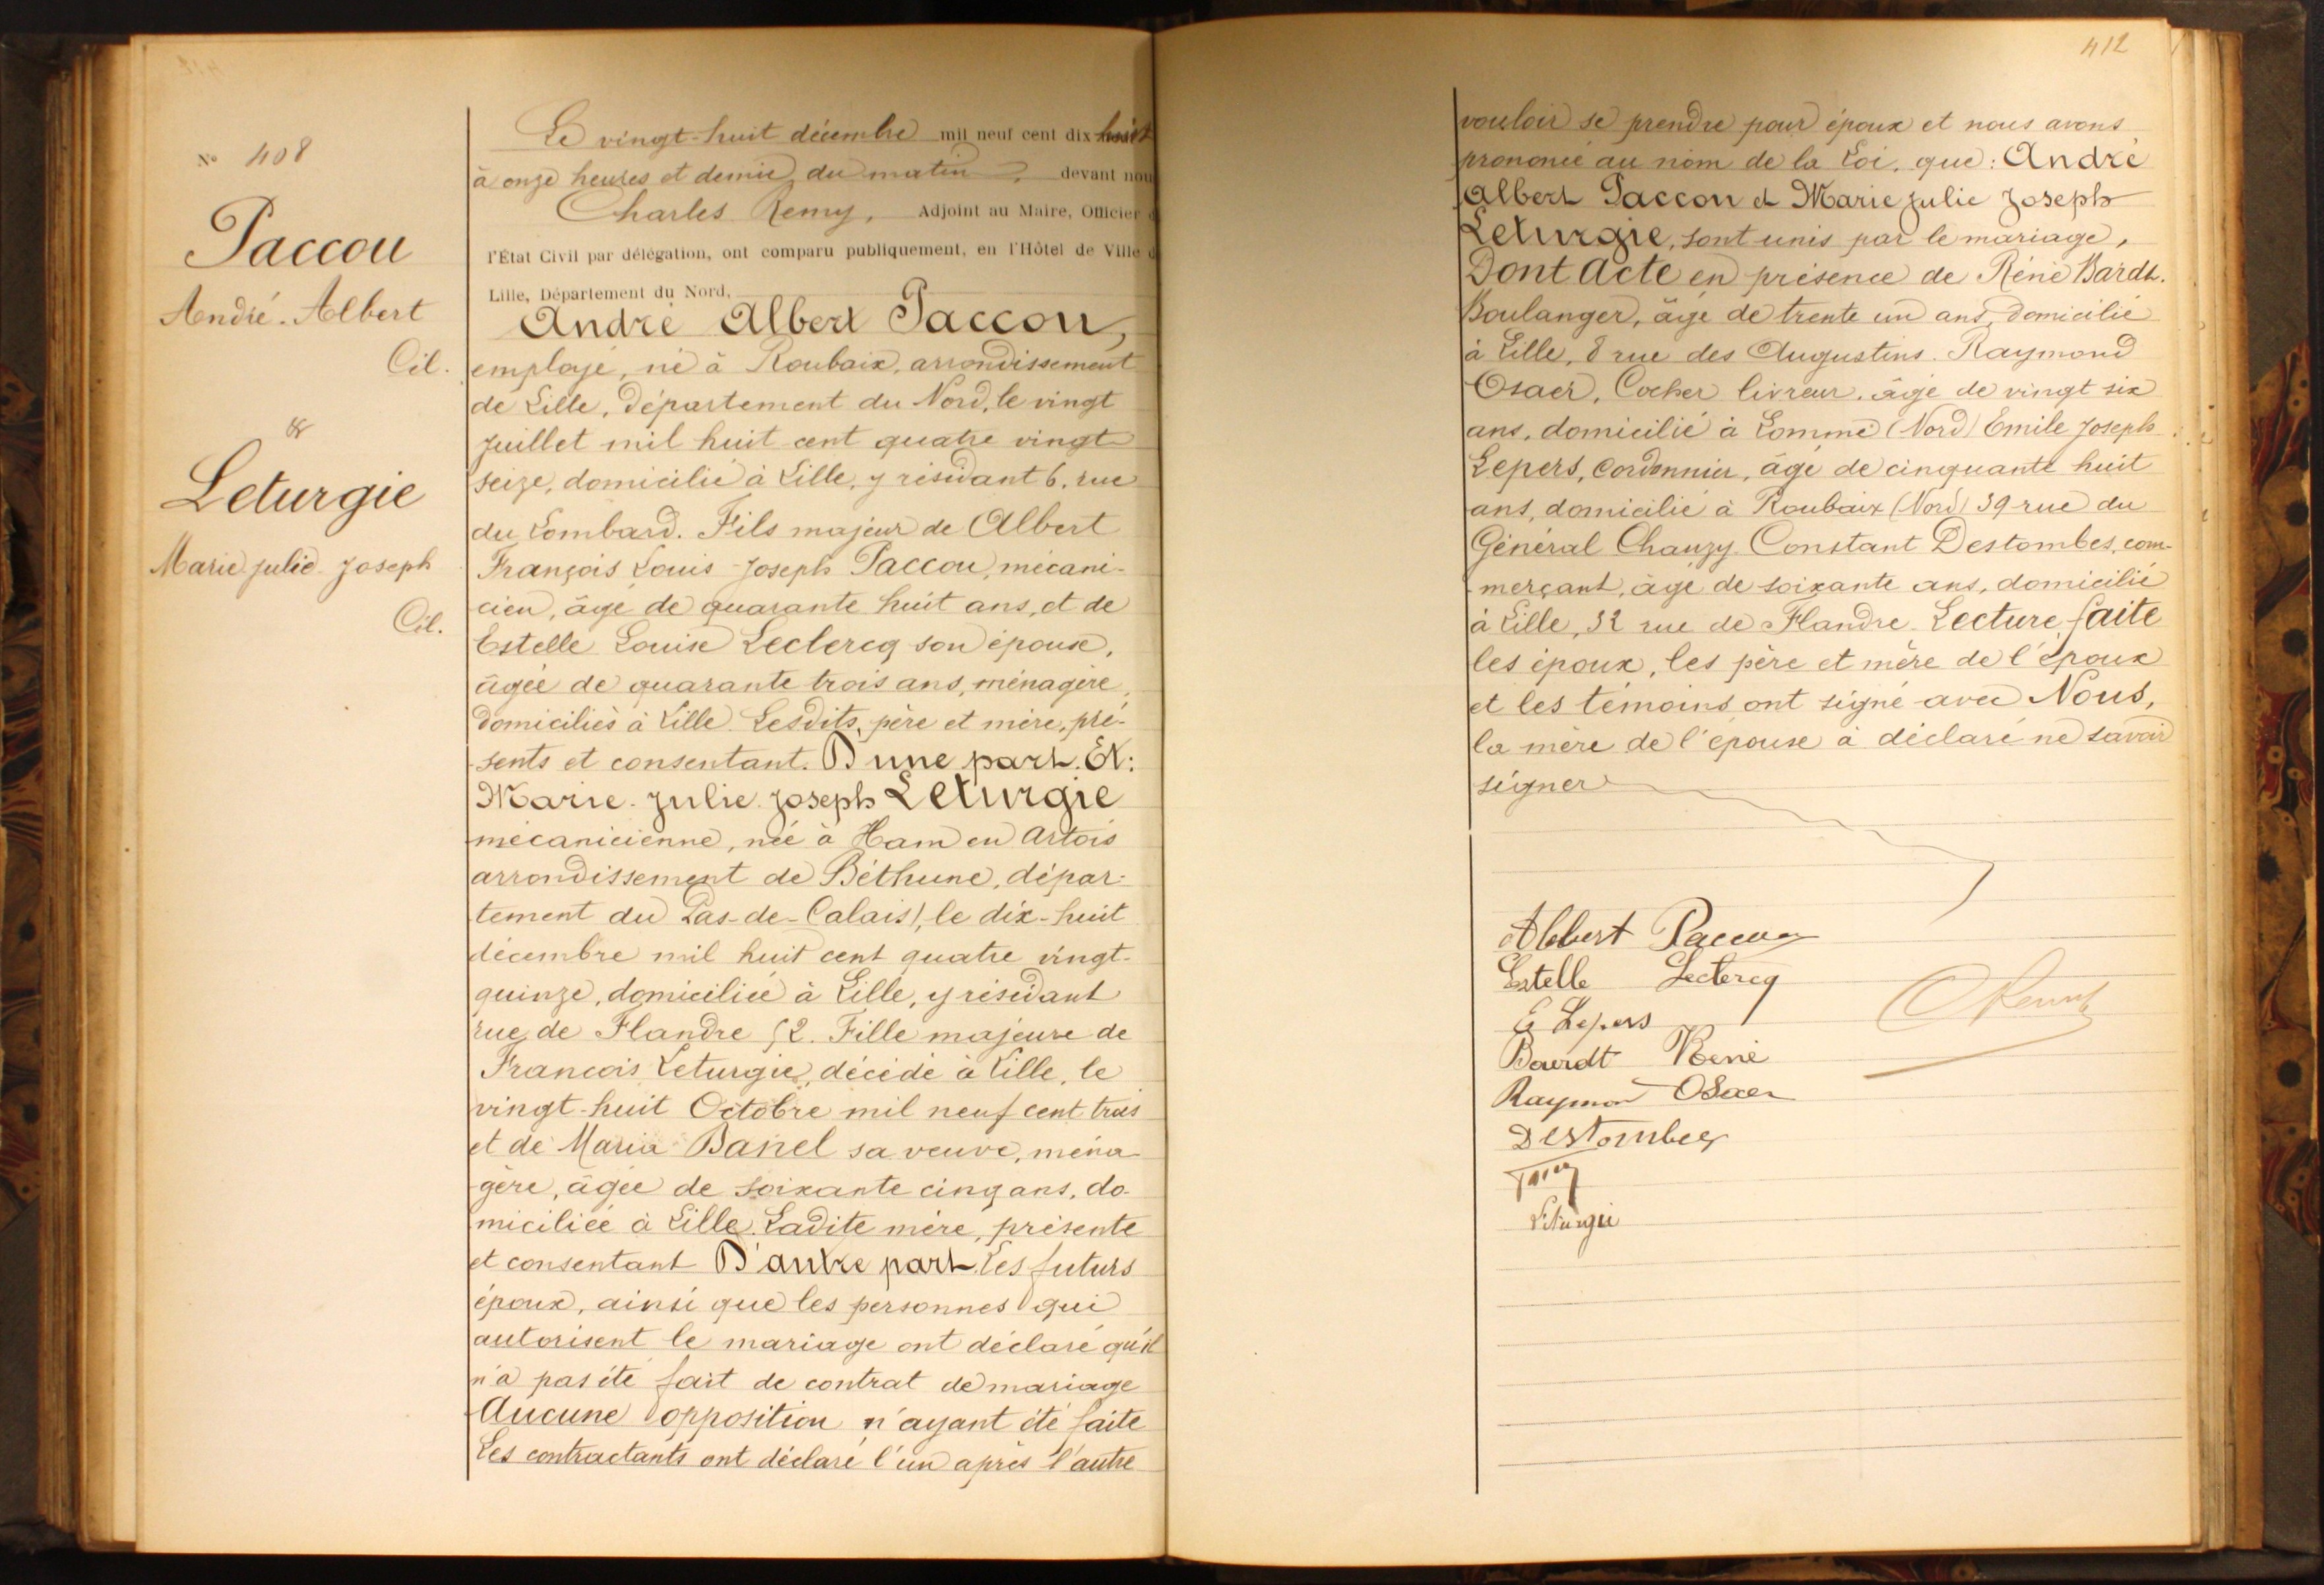 N° 408
Paccou
André-Albert
Cél.
&
Leturgie
Marie Julie Joseph
Cél.
Le vingt-huit décembre mil neuf cent dix-huit
à onze heures et demie du matin, devant nou
Charles Remy, Adjoint au Maire, Officier d
l'État Civil par délégation, ont comparu publiquement, en l'Hôtel de Ville d
Lille, Département du Nord,
André Albert Paccou,
employé, né à Roubaix, arrondissement
de Lille, département du Nord, le vingt
juillet mil huit cent quatre vingt
seize, domicilié à Lille, y résidant 6, rue
du Lombard. Fils majeur de Albert
François Louis Joseph Paccou, mécani-
cien, âgé de quarante huit ans, et de
Estelle Louise Leclercq son épouse,
âgée de quarante trois ans, ménagère,
domiciliés à Lille. Lesdits, père et mère, pré-
sents et consentant. D'une part. Et:
Marie-Julie-Joseph Leturgie
mécanicienne, née à Ham en Artois
arrondissement de Béthune, dépar-
tement du Pas-de-Calais), le dix-huit
décembre mil huit cent quatre vingt-
quinze, domiciliée à Lille, y résidant
rue de Flandre 52. Fille majeure de
Francois Leturgie, décédé à Lille, le
vingt-huit Octobre mil neuf cent trois
et de Maria Banel sa veuve, ména-
gère, âgée de soixante cinq ans, do-
miciliée à Lille. Ladite mère, présente
et consentant D'autre part. Les futurs
époux, ainsi que les personnes qui
autorisent le mariage ont déclaré qu'il
n'a pas été fait de contrat de mariage
Aucune opposition n'ayant été faite
Les contractants ont déclaré l'un après l'autre
412
vouloir se prendre pour époux et nous avons
prononcé au nom de la Loi, que: André
Albert Paccou et Marie Julie Joseph
Leturgie, sont unis par le mariage,
Dont Acte en présence de Réné Bardt.
Boulanger, âgé de trente un ans, domicilié
à Lille, 8 rue des Augustins. Raymond
Osaer, Cocher livreur, âgé de vingt six
ans, domicilié à Lomme (Nord) Emile Joseph
Lepers, Cordonnier, âgé de cinquante huit
ans, domicilié à Roubaix (Nord) 39 rue du
Général Chanzy. Constant Destombes, com-
merçant, âgé de soixante ans, domicilié
à Lille, 52 rue de Flandre. Lecture faite
les époux, les père et mère de l'époux
et les témoins ont signé avec Nous,
la mère de l'épouse a déclaré ne savoir
signer
Albert Paccou
Estelle Leclercq
E Lepers
C Remy
Baerdt René
Raymon OSaer
Destombes
Leturgie